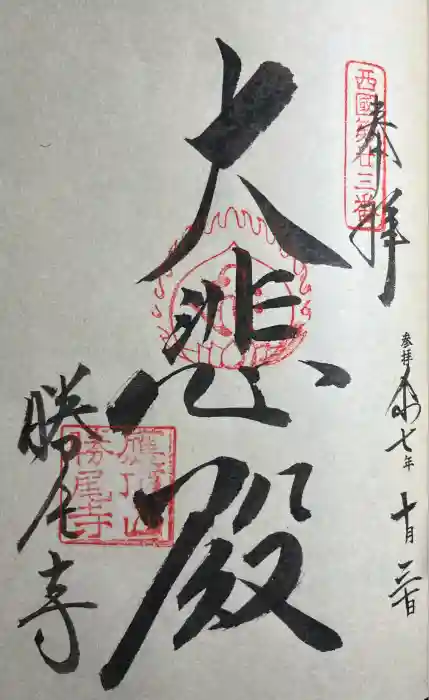 西國第廿三番
奉拝
参拝 令和七年 十月 二日
大悲殿
應頂山
勝尾寺
勝尾寺